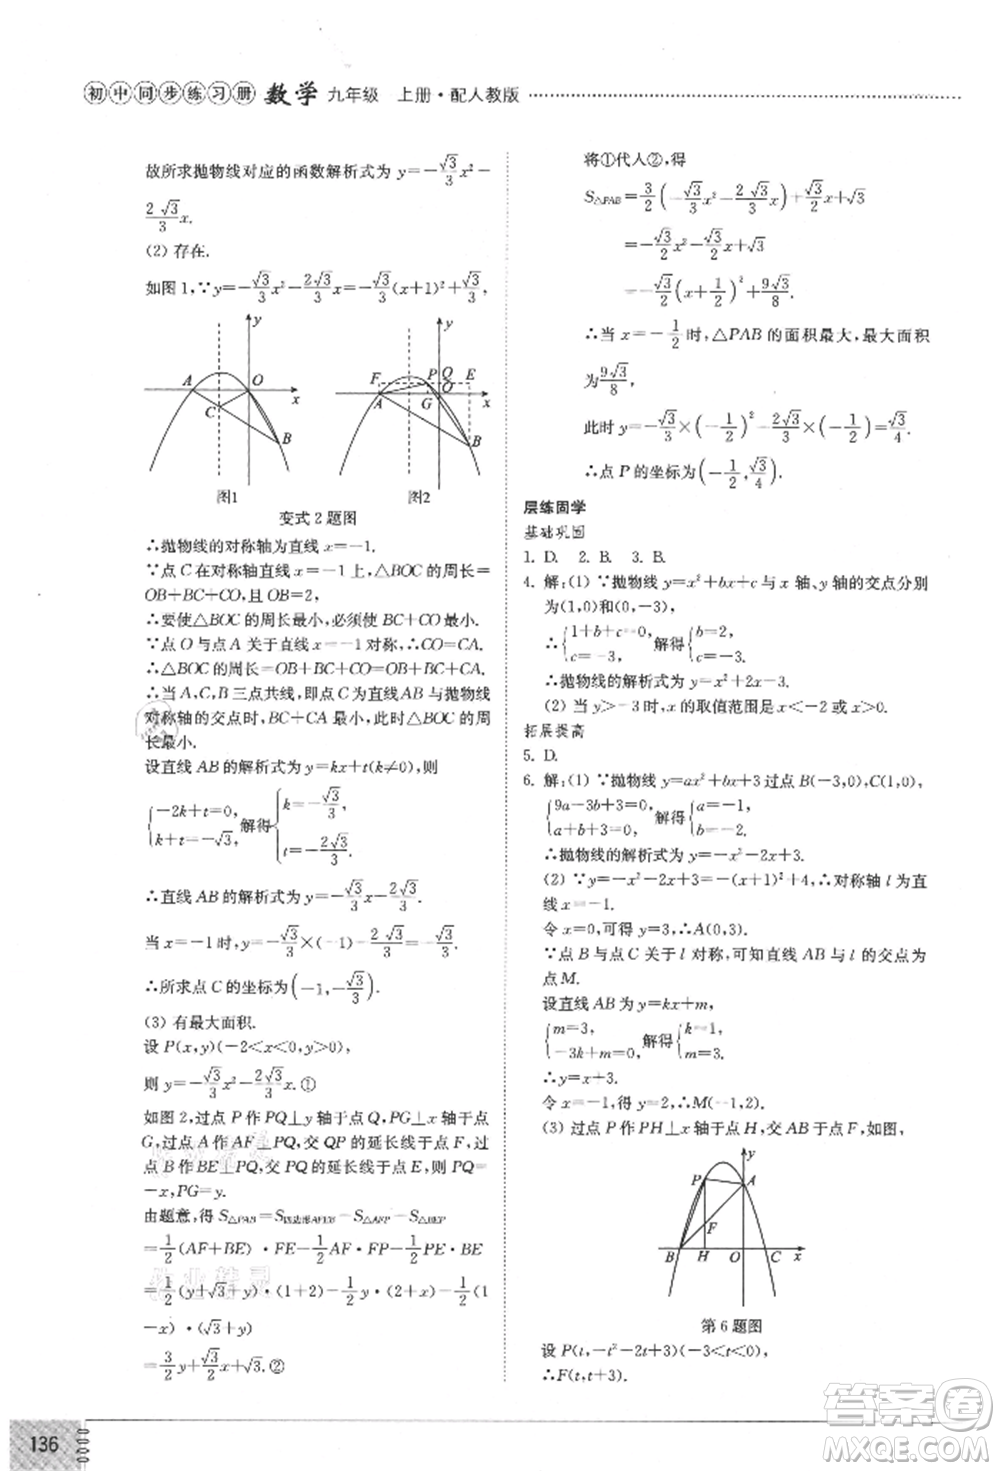 初中同步练习册 数学 九年级 上册·配人教版
故所求抛物线对应的函数解析式为 y=-√3/3x²-
2√3/3x.
(2) 存在.
如图 1,∵y=-√3/3x²-2√3/3x=-√3/3(x+1)²+√3/3,
y
A
O
x
C
B
图1
y
F
P
Q
E
A
G
O
x
B
图2
变式 2 题图
∴抛物线的对称轴为直线 x=-1.
∵点 C 在对称轴直线 x=-1 上,△BOC 的周长=
OB+BC+CO,且 OB=2,
∴要使△BOC 的周长最小,必须使 BC+CO 最小.
∵点 O 与点 A 关于直线 x=-1 对称,∴CO=CA.
∴△BOC 的周长=OB+BC+CO=OB+BC+CA.
∴当 A,C,B 三点共线,即点 C 为直线 AB 与抛物线
对称轴的交点时,BC+CA 最小,此时△BOC 的周
长最小.
设直线 AB 的解析式为 y=kx+t(k≠0),则
{-2k+t=0, k+t=-√3, 解得{k=-√3/3, t=-2√3/3.
∴直线 AB 的解析式为 y=-√3/3x-2√3/3.
当 x=-1 时,y=-√3/3×(-1)-2√3/3=-√3/3.
∴所求点 C 的坐标为(-1,-√3/3).
(3) 有最大面积.
设 P(x,y)(-2<x<0,y>0),
则 y=-√3/3x²-2√3/3x.①
如图 2,过点 P 作 PQ⊥y 轴于点 Q,PG⊥x 轴于点
G,过点 A 作 AF⊥PQ,交 QP 的延长线于点 F,过
点 B 作 BE⊥PQ,交 PQ 的延长线于点 E,则 PQ=
-x,PG=y.
由题意,得 S△PAB=S四边形AFEB-S△AFP-S△BEP
=1/2(AF+BE)·FE-1/2AF·FP-1/2PE·BE
=1/2(y+√3+y)(1+2)-1/2y·(2+x)-1/2(1
-x)·(√3+y)
=3/2y+√3/2x+√3.②
将①代入②,得
S△PAB=3/2(-√3/3x²-2√3/3x)+√3/2x+√3
=-√3/2x²-√3/2x+√3
=-√3/2(x+1/2)²+9√3/8.
∴当 x=-1/2时,△PAB 的面积最大,最大面积
为9√3/8.
此时 y=-√3/3×(-1/2)²-2√3/3×(-1/2)=√3/4.
∴点 P 的坐标为(-1/2,√3/4).
层练固学
基础巩固
1. D. 2. B. 3. B.
4. 解:(1) ∵抛物线 y=x²+bx+c 与 x 轴、y 轴的交点分别
为(1,0)和(0,-3),
∴{1+b+c=0, c=-3, 解得{b=2, c=-3.
∴抛物线的解析式为 y=x²+2x-3.
(2) 当 y>-3 时,x 的取值范围是 x<-2 或 x>0.
拓展提高
5. D.
6. 解:(1) ∵抛物线 y=ax²+bx+3 过点 B(-3,0),C(1,0),
∴{9a-3b+3=0, a+b+3=0, 解得{a=-1, b=-2.
∴抛物线的解析式为 y=-x²-2x+3.
(2) ∵y=-x²-2x+3=-(x+1)²+4,∴对称轴 l 为直
线 x=-1.
令 x=0,可得 y=3,∴A(0,3).
∵点 B 与点 C 关于 l 对称,可知直线 AB 与 l 的交点为
点 M.
设直线 AB 为 y=kx+m,
∴{m=3, -3k+m=0, 解得{k=1, m=3.
∴y=x+3.
令 x=-1,得 y=2,∴M(-1,2).
(3) 过点 P 作 PH⊥x 轴于点 H,交 AB 于点 F,如图,
y
P
A
F
B
H
O
C
x
第 6 题图
设 P(t,-t²-2t+3)(-3<t<0),
∴F(t,t+3).
136
答案圈
MXQE.COM